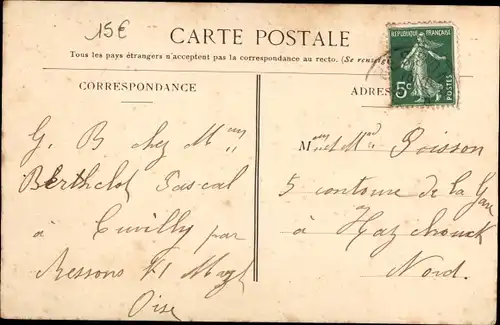 15€
CARTE POSTALE
Tous les pays étrangers n'acceptent pas la correspondance au recto. (Se renseign
REPUBLIQUE FRANÇAISE
5c
POSTES
CORRESPONDANCE
ADRES
G. B chez M
Berthelot Pascal
à Cuvilly par
Ressons s/ Matz
Oise
M et Md Poisson
5 contour de la Gare
à Hazebrouck
Nord.